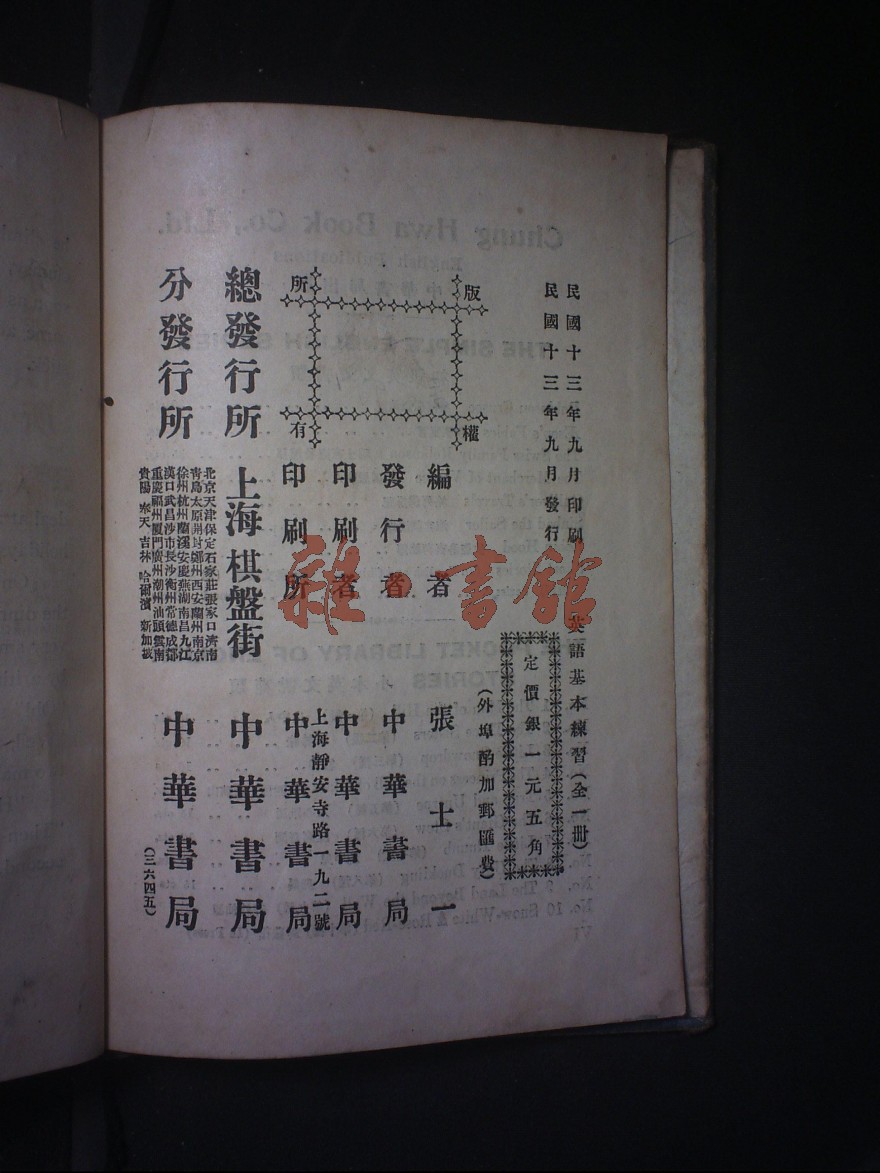 民國十三年九月印刷
民國十三年九月發行
英語基本練習(全一冊)
定價銀一元五角
(外埠酌加郵匯費)
版權所有
編者 張士一
發行者 中華書局
印刷者 中華書局
上海靜安寺路一九二號
印刷所 中華書局
總發行所 上海棋盤街 中華書局
分發行所 中華書局
北京天津保定石家莊張家口濟南
青島太原開封鄭州西安蘭州南京
徐州杭州蘭溪安慶蕪湖南昌九江
漢口武昌沙市長沙衡州常德成都
重慶福州廈門廣州潮州汕頭雲南
貴陽 奉天 吉林 哈爾濱 新加坡
(三六四五)
雜書館